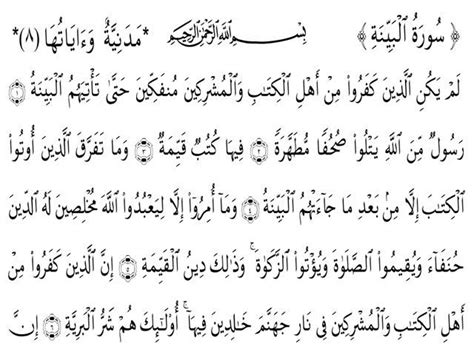 ﴿ سُورَةُ ٱلْبَيِّنَةِ ﴾ بِسْمِ ٱللَّهِ ٱلرَّحْمَٰنِ ٱلرَّحِيمِ *مَدَنِيَّةٌ وَءَايَاتُهَا (٨)*
لَمْ يَكُنِ ٱلَّذِينَ كَفَرُوا۟ مِنْ أَهْلِ ٱلْكِتَٰبِ وَٱلْمُشْرِكِينَ مُنفَكِّينَ حَتَّىٰ تَأْتِيَهُمُ ٱلْبَيِّنَةُ ۝١
رَسُولٌ مِّنَ ٱللَّهِ يَتْلُوا۟ صُحُفًا مُّطَهَّرَةً ۝٢ فِيهَا كُتُبٌ قَيِّمَةٌ ۝٣ وَمَا تَفَرَّقَ ٱلَّذِينَ أُوتُوا۟
ٱلْكِتَٰبَ إِلَّا مِنۢ بَعْدِ مَا جَآءَتْهُمُ ٱلْبَيِّنَةُ ۝٤ وَمَآ أُمِرُوٓا۟ إِلَّا لِيَعْبُدُوا۟ ٱللَّهَ مُخْلِصِينَ لَهُ ٱلدِّينَ
حُنَفَآءَ وَيُقِيمُوا۟ ٱلصَّلَوٰةَ وَيُؤْتُوا۟ ٱلزَّكَوٰةَ ۚ وَذَٰلِكَ دِينُ ٱلْقَيِّمَةِ ۝٥ إِنَّ ٱلَّذِينَ كَفَرُوا۟ مِنْ
أَهْلِ ٱلْكِتَٰبِ وَٱلْمُشْرِكِينَ فِى نَارِ جَهَنَّمَ خَٰلِدِينَ فِيهَآ ۚ أُو۟لَٰٓئِكَ هُمْ شَرُّ ٱلْبَرِيَّةِ ۝٦ إِنَّ